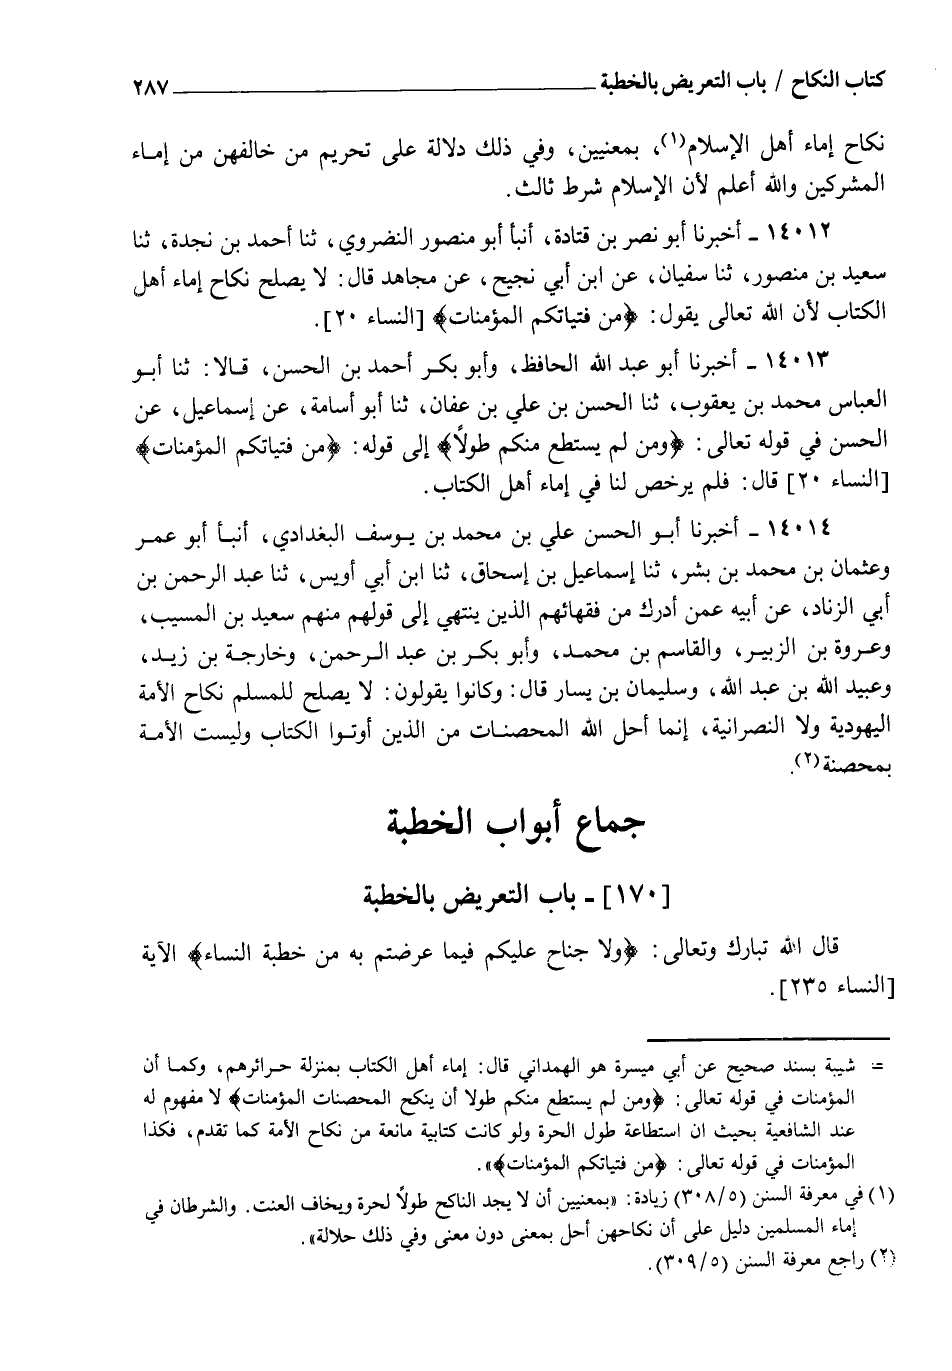 كتاب النكاح / باب التعريض بالخطبة ـــــــ ٢٨٧
نكاح إماء أهل الإسلام(١)، بمعنيين، وفي ذلك دلالة على تحريم من خالفهن من إماء
المشركين والله أعلم لأن الإسلام شرط ثالث.
١٤٠١٢ ـ أخبرنا أبو نصر بن قتادة، أنبأ أبو منصور النضروي، ثنا أحمد بن نجدة، ثنا
سعيد بن منصور، ثنا سفيان، عن ابن أبي نجيح، عن مجاهد قال: لا يصلح نكاح إماء أهل
الكتاب لأن الله تعالى يقول: ﴿من فتياتكم المؤمنات﴾ [النساء ٢٠].
١٤٠١٣ ـ أخبرنا أبو عبد الله الحافظ، وأبو بكر أحمد بن الحسن، قالا: ثنا أبو
العباس محمد بن يعقوب، ثنا الحسن بن علي بن عفان، ثنا أبو أسامة، عن إسماعيل، عن
الحسن في قوله تعالى: ﴿ومن لم يستطع منكم طولًا﴾ إلى قوله: ﴿من فتياتكم المؤمنات﴾
[النساء ٢٠] قال: فلم يرخص لنا في إماء أهل الكتاب.
١٤٠١٤ ـ أخبرنا أبو الحسن علي بن محمد بن يوسف البغدادي، أنبأ أبو عمر
وعثمان بن محمد بن بشر، ثنا إسماعيل بن إسحاق، ثنا ابن أبي أويس، ثنا عبد الرحمن بن
أبي الزناد، عن أبيه عمن أدرك من فقهائهم الذين ينتهي إلى قولهم منهم سعيد بن المسيب،
وعروة بن الزبير، والقاسم بن محمد، وأبو بكر بن عبد الرحمن، وخارجة بن زيد،
وعبيد الله بن عبد الله، وسليمان بن يسار قال: وكانوا يقولون: لا يصلح للمسلم نكاح الأمة
اليهودية ولا النصرانية، إنما أحل الله المحصنات من الذين أوتوا الكتاب وليست الأمة
بمحصنة(٢).
جماع أبواب الخطبة
[١٧٠] ـ باب التعريض بالخطبة
قال الله تبارك وتعالى: ﴿ولا جناح عليكم فيما عرضتم به من خطبة النساء﴾ الآية
[النساء ٢٣٥].
= شيبة بسند صحيح عن أبي ميسرة هو الهمداني قال: إماء أهل الكتاب بمنزلة حرائرهم، وكما أن
المؤمنات في قوله تعالى: ﴿ومن لم يستطع منكم طولا أن ينكح المحصنات المؤمنات﴾ لا مفهوم له
عند الشافعية بحيث ان استطاعة طول الحرة ولو كانت كتابية مانعة من نكاح الأمة كما تقدم، فكذا
المؤمنات في قوله تعالى: ﴿من فتياتكم المؤمنات﴾».
(١) في معرفة السنن (٣٠٨/٥) زيادة: «بمعنيين أن لا يجد الناكح طولًا لحرة ويخاف العنت. والشرطان في
إماء المسلمين دليل على أن نكاحهن أحل بمعنى دون معنى وفي ذلك حلالة».
(٢) راجع معرفة السنن (٣٠٩/٥).